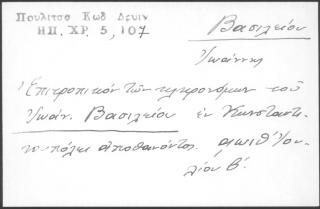 Πουλίτσα Κωδ Δρυιν
ΗΠ. ΧΡ. 5, 107
Βασιλείου
Ἰωάννης
Ἐπιτροπικόν τῶν κληρονόμων τοῦ
Ἰωάν. Βασιλείου ἐν Κωνσταντι
νουπόλει ἀποθανόντος. αωιθʹ Ἰου
λίου βʹ.